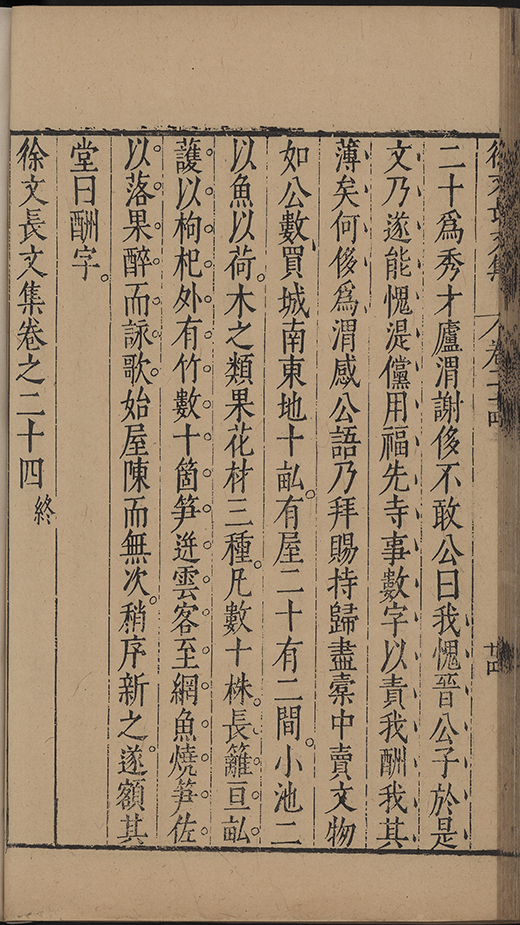 徐文長文集 卷二十四 十四
二十爲秀才廬渭謝侈不敢公曰我愧晉公子於是
文乃遂能愧湜儻用福先寺事數字以責我酬我其
薄矣何侈爲渭感公語乃拜賜持歸盡橐中賣文物
如公數買城南東地十畆有屋二十有二間小池二
以魚以荷木之類果花材三種凡數十株長籬亘畆
護以枸杞外有竹數十箇笋迸雲客至網魚燒笋佐
以落果醉而詠歌始屋陳而無次稍序新之遂額其
堂曰酬字
徐文長文集卷之二十四 終